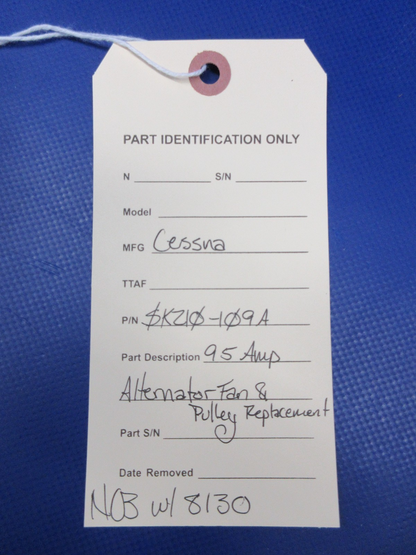 PART IDENTIFICATION ONLY
N S/N
Model
MFG Cessna
TTAF
P/N SK210-109A
Part Description 95 Amp
Alternator Fan &
Pulley Replacement
Part S/N
Date Removed
NOB w/ 8130